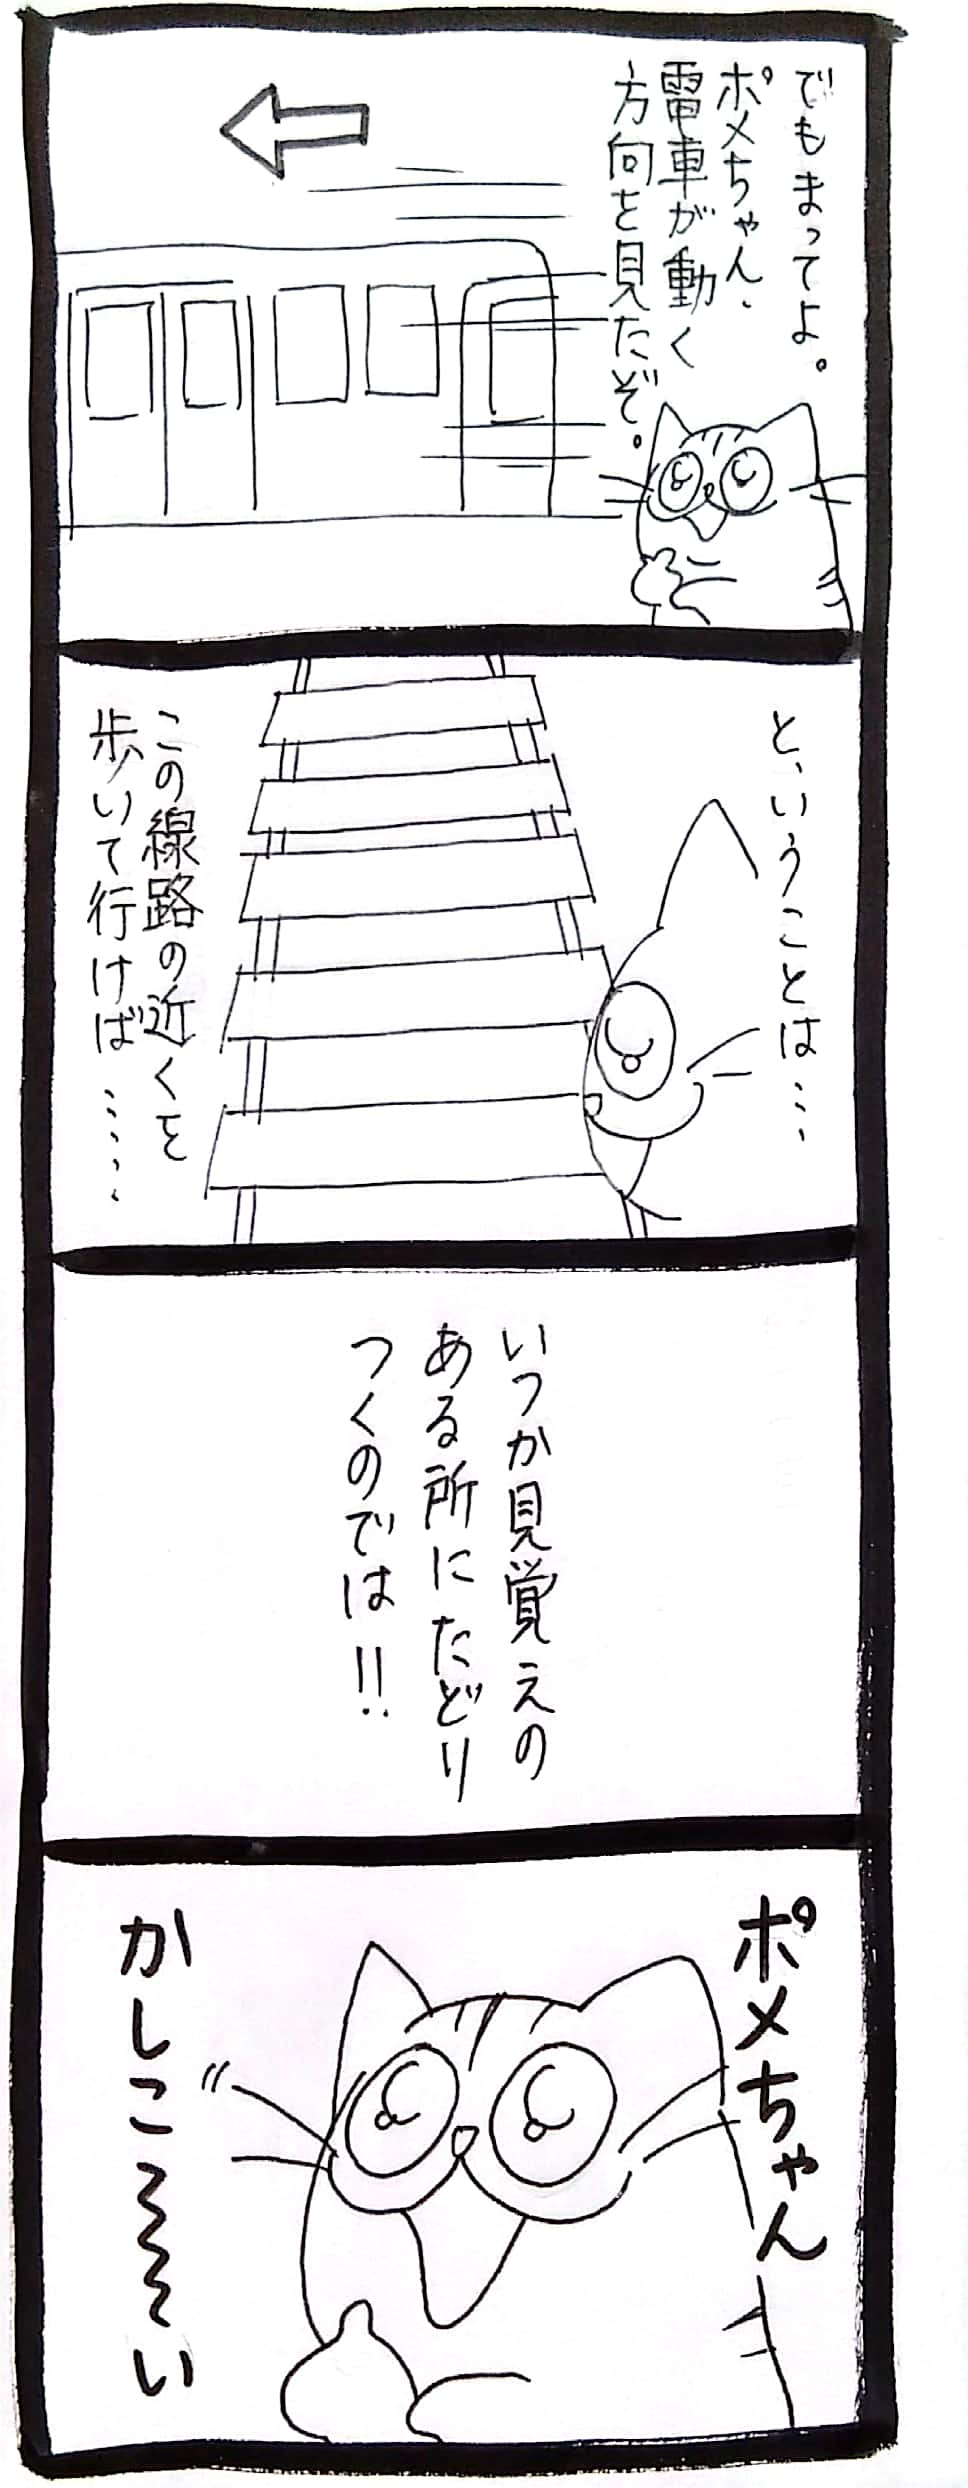 でもまってよ。
ポメちゃん、
電車が動く
方向を見たぞ。
と、いうことは…
この線路の近くを
歩いて行けば……
いつか見覚えの
ある所にたどり
つくのでは!!
ポメちゃん
かしこ〜〜い